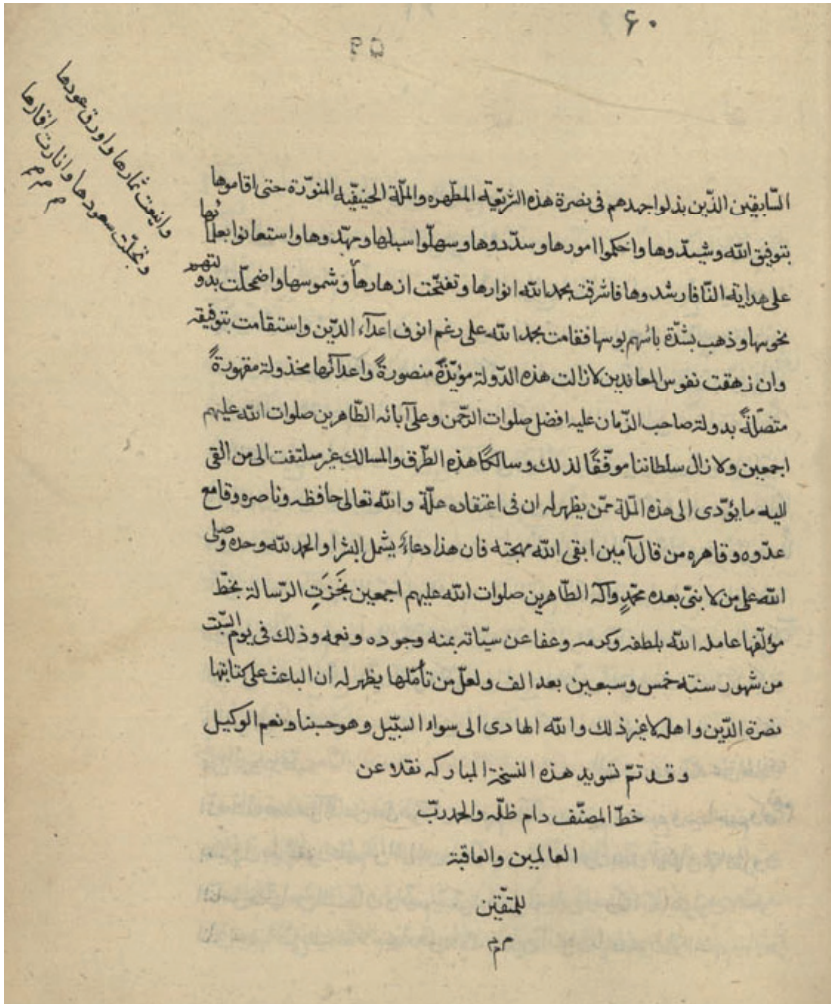 ۶۰
۵۹
وانیعت ثمارها واورق عودها
وتجلّت سعودها وانارت اقمارها
م م م
السّابقین الذّین بذلوا جهدهم فی نصرة هذه الشریعّة المطّهره والملّة الحنیفّیه المنوّرة حتی اقاموها
بتوفیق الله وشیّدوها واحکموا امورها وسدّدوها وسهلّوا سبلها ومهّدوها واستعانوا بعلمائها
علی هدایة النّاس فارشدوها فاشرقت بحمد الله انوارها وتفتّحت ازهارها وشموسها واضمحلّت بدولتهم
نحوسها وذهب بشدّة باسهم بوسها فقامت بحمد الله علی رغم انوف اعدآء الدّین واستقامت بتوفیقه
وان زهقت نفوس المعاندین لازالت هذه الدّولة مؤیّدةً منصورةً واعدآئها مخذولة مقهورةً
متصّلةً بدولة صاحب الزّمان علیه افضل صلوات الرّحمن وعلی آبائه الطّاهرین صلوات الله علیهم
اجمعین ولا زال سلطاننا موفّقًا لذلک وسالکًا هذه الطّرق والمسالک غیر ملتفت الی من القی
الیه ما یؤدّی الی هذه الملّة ممّن یظهر له ان فی اعتقاده علّة والله تعالی حافظه وناصره وقامع
عدّوه وقاهره من قال آمین ابقی الله مهجته فان هذا دعاءٌ یشمل البشرا والحمد لله وحده وصلی
الله علی من لا نبیّ بعده محمّدٍ وآله الطّاهرین صلوات الله علیهم اجمعین نَجَزَتِ الرّسالة بخطّ
مؤلّفها عامله الله بلطفه وکرمه وعفا عن سیّاته بمنه وجوده ونعمه وذلک فی یوم السّبت
من شهور سنة خمس وسبعین بعد الف ولعلّ من تأمّلها یظهر له ان الباعث علی کتابتها
نصرة الدّین واهله لا غیر ذلک والله الهادی الی سواء السبّیل وهو حسبنا ونعم الوکیل
وقد تمّ تسوید هذه النسخة المبارکه نقلا عن
خطّ المصنّف دام ظلّه والحمد ربّ
العالمین والعاقبة
للمتقّین
م م